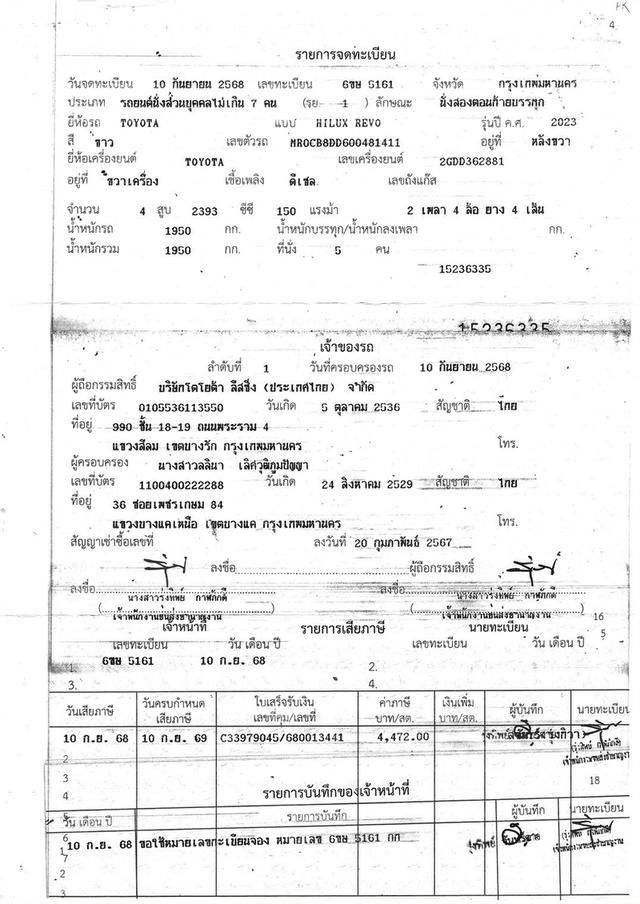 PK
4.
รายการจดทะเบียน
วันจดทะเบียน 10 กันยายน 2568 เลขทะเบียน 6ขษ 5161 จังหวัด กรุงเทพมหานคร
ประเภท รถยนต์นั่งส่วนบุคคลไม่เกิน 7 คน (รย. 1 ) ลักษณะ นั่งสองตอนท้ายบรรทุก
ยี่ห้อรถ TOYOTA แบบ HILUX REVO รุ่นปี ค.ศ. 2023
สี ขาว เลขตัวรถ MR0CB8DD600481411 อยู่ที่ หลังขวา
ยี่ห้อเครื่องยนต์ TOYOTA เลขเครื่องยนต์ 2GDD362881
อยู่ที่ ขวาเครื่อง เชื้อเพลิง ดีเซล เลขถังแก๊ส
จำนวน 4 สูบ 2393 ซีซี 150 แรงม้า 2 เพลา 4 ล้อ ยาง 4 เส้น
น้ำหนักรถ 1950 กก. น้ำหนักบรรทุก/น้ำหนักลงเพลา กก.
น้ำหนักรวม 1950 กก. ที่นั่ง 5 คน
15236335
15236335
เจ้าของรถ
ลำดับที่ 1 วันที่ครอบครองรถ 10 กันยายน 2568
ผู้ถือกรรมสิทธิ์ บริษัทโตโยต้า ลีสซิ่ง (ประเทศไทย) จำกัด
เลขที่บัตร 0105536113550 วันเกิด 5 ตุลาคม 2536 สัญชาติ ไทย
ที่อยู่ 990 ชั้น 18-19 ถนนพระราม 4
แขวงสีลม เขตบางรัก กรุงเทพมหานคร โทร.
ผู้ครอบครอง นางสาวลลินา เลิศวุฒิภูมิปัญญา
เลขที่บัตร 1100400222288 วันเกิด 24 สิงหาคม 2529 สัญชาติ ไทย
ที่อยู่ 36 ซอยเพชรเกษม 84
แขวงบางแคเหนือ เขตบางแค กรุงเทพมหานคร โทร.
สัญญาเช่าซื้อเลขที่ ลงวันที่ 20 กุมภาพันธ์ 2567
ลงชื่อ ผู้ถือกรรมสิทธิ์
ลงชื่อ ลงชื่อ
นางสาวรุ่งทิพย์ กาฬภักดี นางสาวรุ่งทิพย์ กาฬภักดี
เจ้าพนักงานขนส่งชำนาญงาน เจ้าพนักงานขนส่งชำนาญงาน
16
เจ้าหน้าที่ รายการเสียภาษี นายทะเบียน
5
เลขทะเบียน วัน เดือน ปี เลขทะเบียน วัน เดือน ปี
1. 6ขษ 5161 10 ก.ย. 68 2.
3. 4.
วันเสียภาษี วันครบกำหนดเสียภาษี ใบเสร็จรับเงิน เลขที่คุม/เลขที่ ค่าภาษี บาท/สต. เงินเพิ่ม บาท/สต. ผู้บันทึก นายทะเบียน
10 ก.ย. 68 10 ก.ย. 69 C33979045/680013441 4,472.00
2
3
18
4 รายการบันทึกของเจ้าหน้าที่
5 วัน เดือน ปี รายการบันทึก ผู้บันทึก นายทะเบียน
6
1 10 ก.ย. 68 ขอใช้หมายเลขทะเบียนจอง หมายเลข 6ขษ 5161 กท รุ่งทิพย์
7
8
3